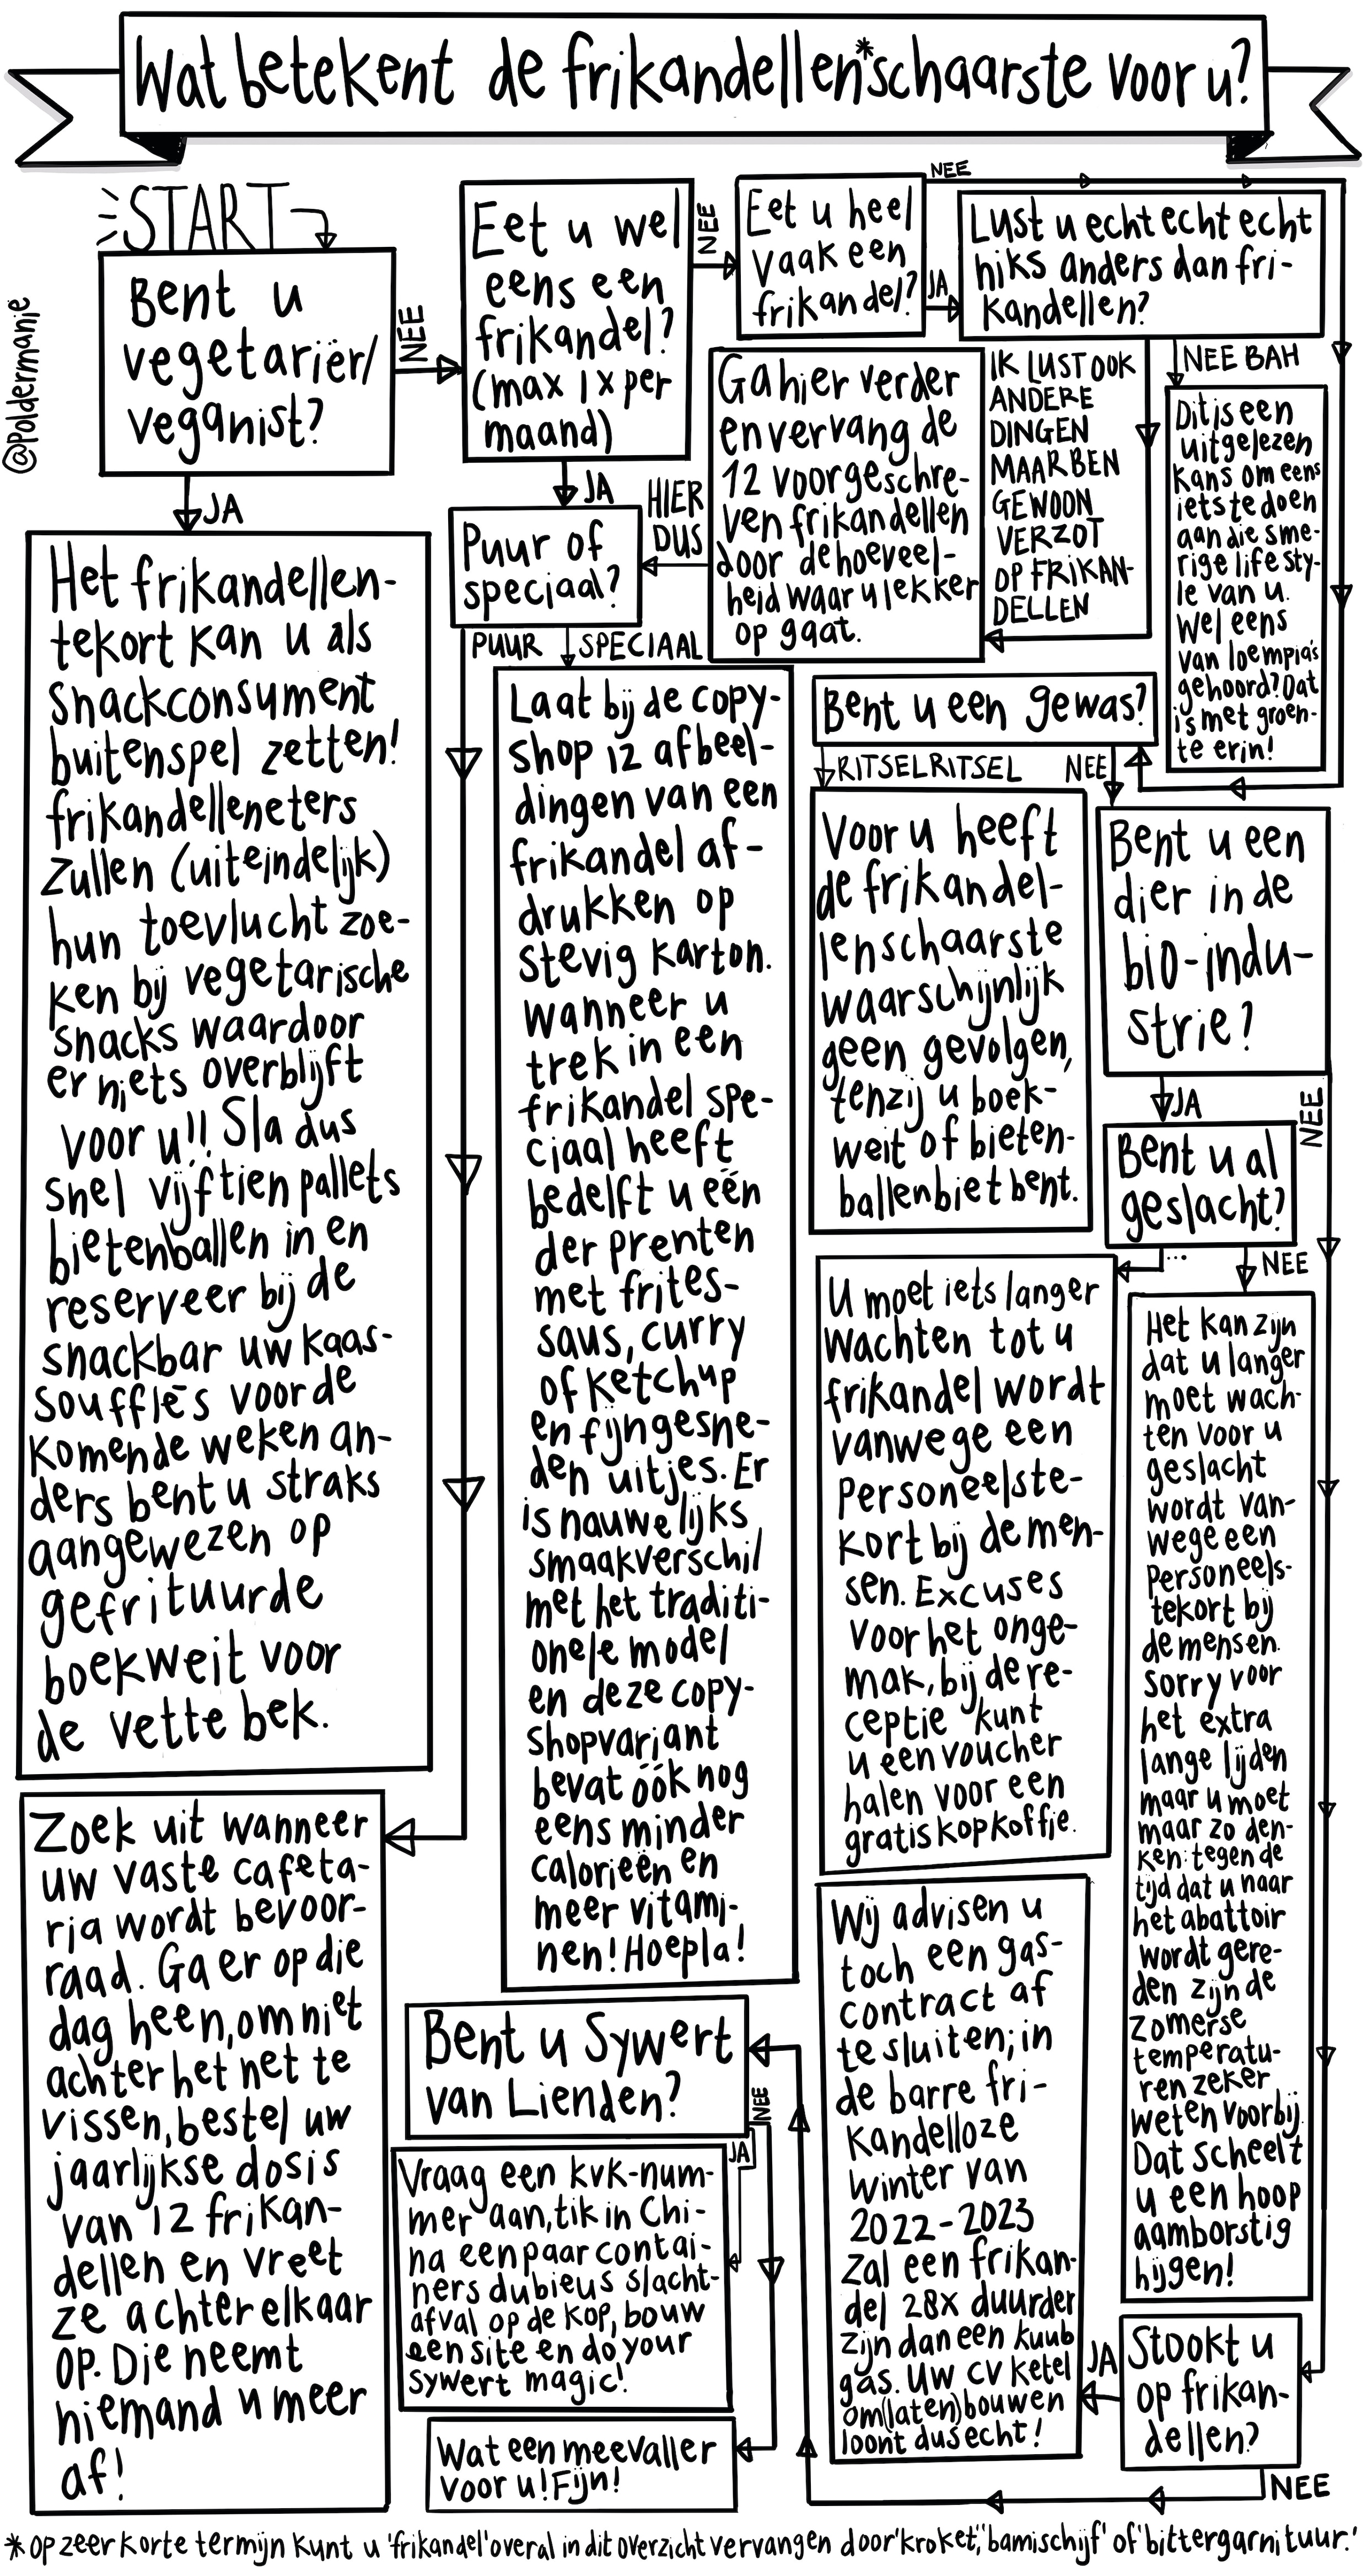 Wat betekent de frikandellen*schaarste voor u?
@poldermanie
START
Bent u
vegetariër/
veganist?
NEE
JA
Eet u wel
eens een
frikandel?
(max 1x per
maand)
NEE
JA
Eet u heel
vaak een
frikandel?
NEE
JA
Lust u echt echt echt
niks anders dan fri-
kandellen?
NEE BAH
IK LUST OOK
ANDERE
DINGEN
MAAR BEN
GEWOON
VERZOT
OP FRIKAN-
DELLEN
Dit is een
uitgelezen
kans om eens
iets te doen
aan die sme-
rige lifesty-
le van u.
Wel eens
van loempia's
gehoord? Dat
is met groen-
te erin!
Ga hier verder
en vervang de
12 voorgeschre-
ven frikandellen
door de hoeveel-
heid waar u lekker
op gaat.
HIER
DUS
Puur of
speciaal?
PUUR
SPECIAAL
Het frikandellen-
tekort kan u als
snackconsument
buitenspel zetten!
frikandelleneters
zullen (uiteindelijk)
hun toevlucht zoe-
ken bij vegetarische
snacks waardoor
er niets overblijft
voor u!! Sla dus
snel vijftien pallets
bietenballen in en
reserveer bij de
snackbar uw kaas-
soufflés voor de
komende weken an-
ders bent u straks
aangewezen op
gefrituurde
boekweit voor
de vette bek.
Zoek uit wanneer
uw vaste cafeta-
ria wordt bevoor-
raad. Ga er op die
dag heen, om niet
achter het net te
vissen, bestel uw
jaarlijkse dosis
van 12 frikan-
dellen en vreet
ze achter elkaar
op. Die neemt
niemand u meer
af!
Laat bij de copy-
shop 12 afbeel-
dingen van een
frikandel af-
drukken op
stevig karton.
wanneer u
trek in een
frikandel spe-
ciaal heeft
bedelft u één
der prenten
met frites-
saus, curry
of ketchup
en fijngesne-
den uitjes. Er
is nauwelijks
smaakverschil
met het traditi-
onele model
en deze copy-
shopvariant
bevat óók nog
eens minder
calorieën en
meer vitami-
nen! Hoepla!
Bent u een gewas?
RITSELRITSEL
NEE
Voor u heeft
de frikandel-
lenschaarste
waarschijnlijk
geen gevolgen,
tenzij u boek-
weit of bieten-
ballenbiet bent.
Bent u een
dier in de
bio-indu-
strie?
JA
NEE
Bent u al
geslacht?
...
NEE
U moet iets langer
wachten tot u
frikandel wordt
vanwege een
personeelste-
kort bij de men-
sen. Excuses
voor het onge-
mak, bij de re-
ceptie kunt
u een voucher
halen voor een
gratis kop koffie.
Het kan zijn
dat u langer
moet wach-
ten voor u
geslacht
wordt van-
wege een
personeels-
tekort bij
de mensen.
sorry voor
het extra
lange lijden
maar u moet
maar zo den-
ken: tegen de
tijd dat u naar
het abattoir
wordt gere-
den zijn de
zomerse
temperatu-
ren zeker
weten voorbij.
Dat scheelt
u een hoop
aamborstig
hijgen!
Stookt u
op frikan-
dellen?
JA
NEE
Wij advisen u
toch een gas-
contract af
te sluiten; in
de barre fri-
kandelloze
winter van
2022-2023
zal een frikan-
del 28x duurder
zijn dan een kuub
gas. Uw cv ketel
om(laten)bouwen
loont dus echt!
Bent u Sywert
van Lienden?
NEE
JA
Vraag een kvk-num-
mer aan, tik in Chi-
na een paar contai-
ners dubieus slacht-
afval op de kop, bouw
een site en do your
sywert magic!
Wat een meevaller
voor u! Fijn!
* Op zeer korte termijn kunt u 'frikandel' overal in dit overzicht vervangen door 'kroket', 'bamischijf' of 'bittergarnituur.'